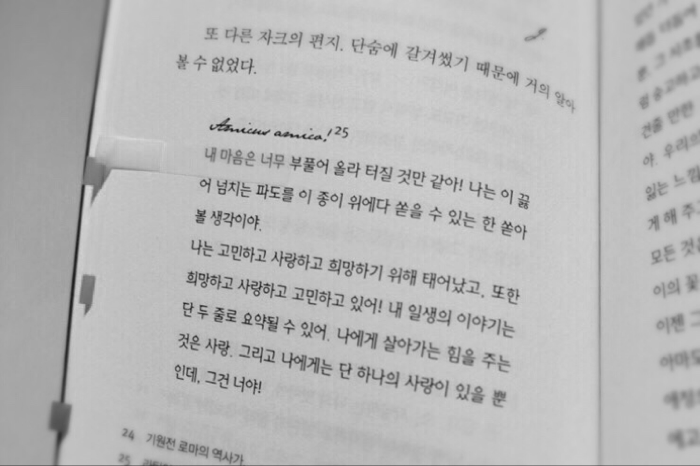 J.
또 다른 자크의 편지. 단숨에 갈겨썼기 때문에 거의 알아
볼 수 없었다.
Amicus amico!25
내 마음은 너무 부풀어 올라 터질 것만 같아! 나는 이 끓
어 넘치는 파도를 이 종이 위에다 쏟을 수 있는 한 쏟아
볼 생각이야.
나는 고민하고 사랑하고 희망하기 위해 태어났고, 또한
희망하고 사랑하고 고민하고 있어! 내 일생의 이야기는
단 두 줄로 요약될 수 있어. 나에게 살아가는 힘을 주는
것은 사랑. 그리고 나에게는 단 하나의 사랑이 있을 뿐
인데, 그건 너야!
24 기원전 로마의 역사가
25
건줄 만한
야. 우리의
잃는 느낌
게 해 주
모든 것은
이의 꽃
이젠 그
아마도